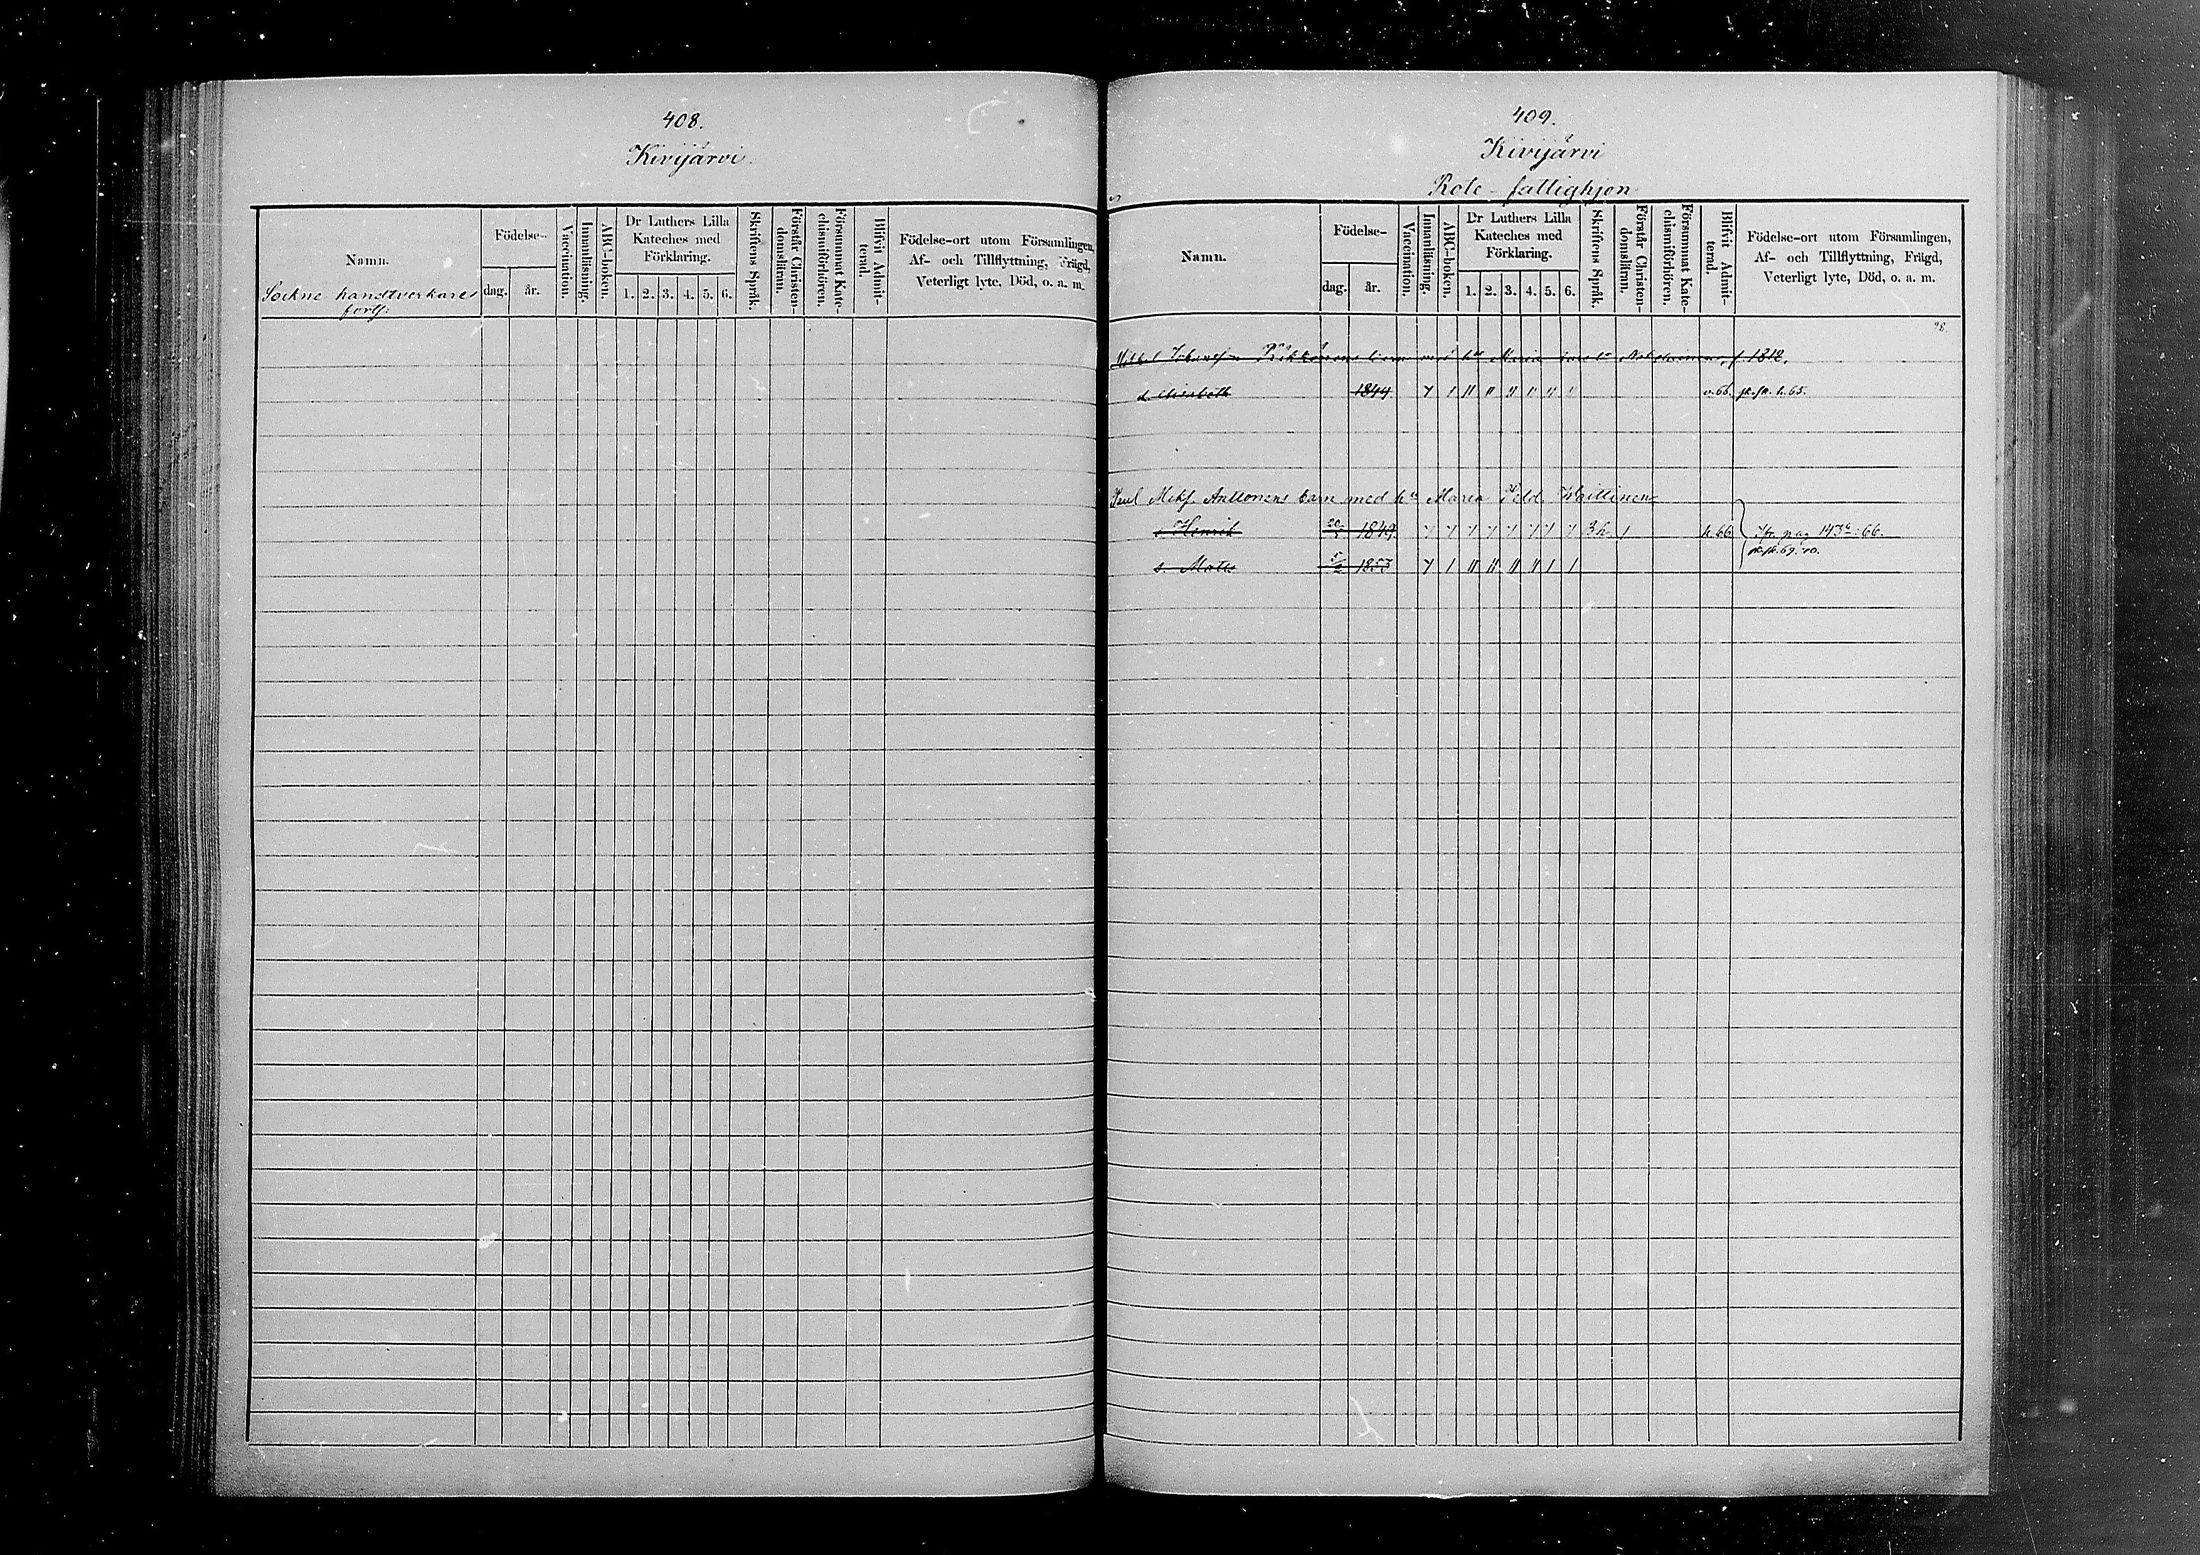 408.
Kivijärvi.
Namn.
Sockne handtverkare
forts:
Födelse-
dag. år.
Vaccination.
Innanläsning.
ABC-boken.
Dr Luthers Lilla
Kateches med
Förklaring.
1. 2. 3. 4. 5. 6.
Skriftens Språk.
Förstår Christen-
domslären.
Försummat Kate-
chismiförhören.
Blifvit Admit-
terad.
Födelse-ort utom Församlingen,
Af- och Tillflyttning, Frägd,
Veterligt lyte, Död, o. a. m.
409.
Kivijärvi
Rote-fattighjon
Namn.
Födelse-
dag. år.
Vaccination.
Innanläsning.
ABC-boken.
Dr Luthers Lilla
Kateches med
Förklaring.
1. 2. 3. 4. 5. 6.
Skriftens Språk.
Förstår Christen-
domslären.
Försummat Kate-
chismiförhören.
Blifvit Admit-
terad.
Födelse-ort utom Församlingen,
Af- och Tillflyttning, Frägd,
Veterligt lyte, Död, o. a. m.
98.
Mikkel Maria 1812.
d. Elisabeth 1849 v. 66.
Paul Mikf. Anttonens barn med hu Maria
s. Henrik 1849 3 h h. 66. pag 143 : 66.
s. Mats 1853